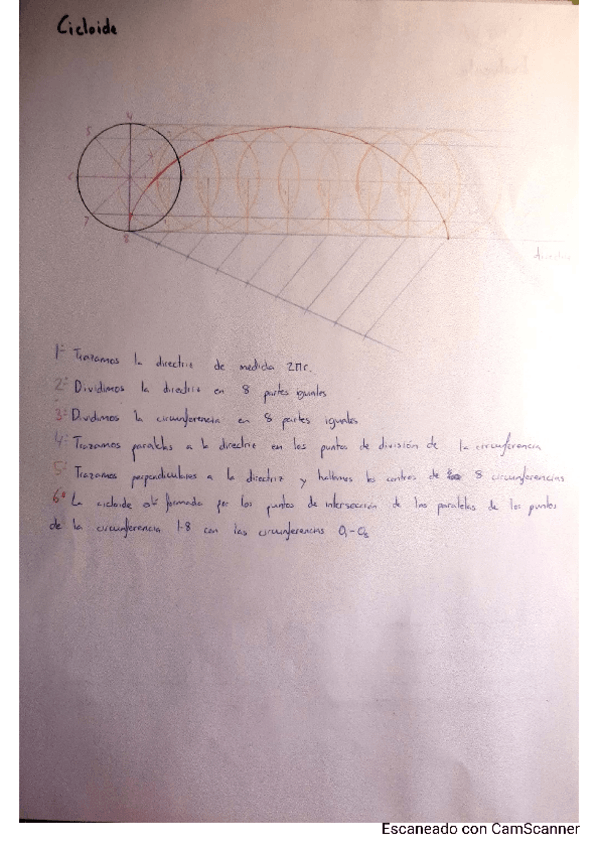 Cicloide
4
5
6
7
8
1º Trazamos la directriz de medida 2πr.
2º Dividimos la directriz en 8 partes iguales
3º Dividimos la circunferencia en 8 partes iguales
4º Trazamos paralelas a la directriz en los puntos de división de la circunferencia
5º Trazamos perpendiculares a la directriz y hallamos los centros de 8 circunferencias
6º La cicloide está formada por los puntos de intersección de las paralelas de los puntos
de la circunferencia 1-8 con las circunferencias O₁-O₈
Escaneado con CamScanner